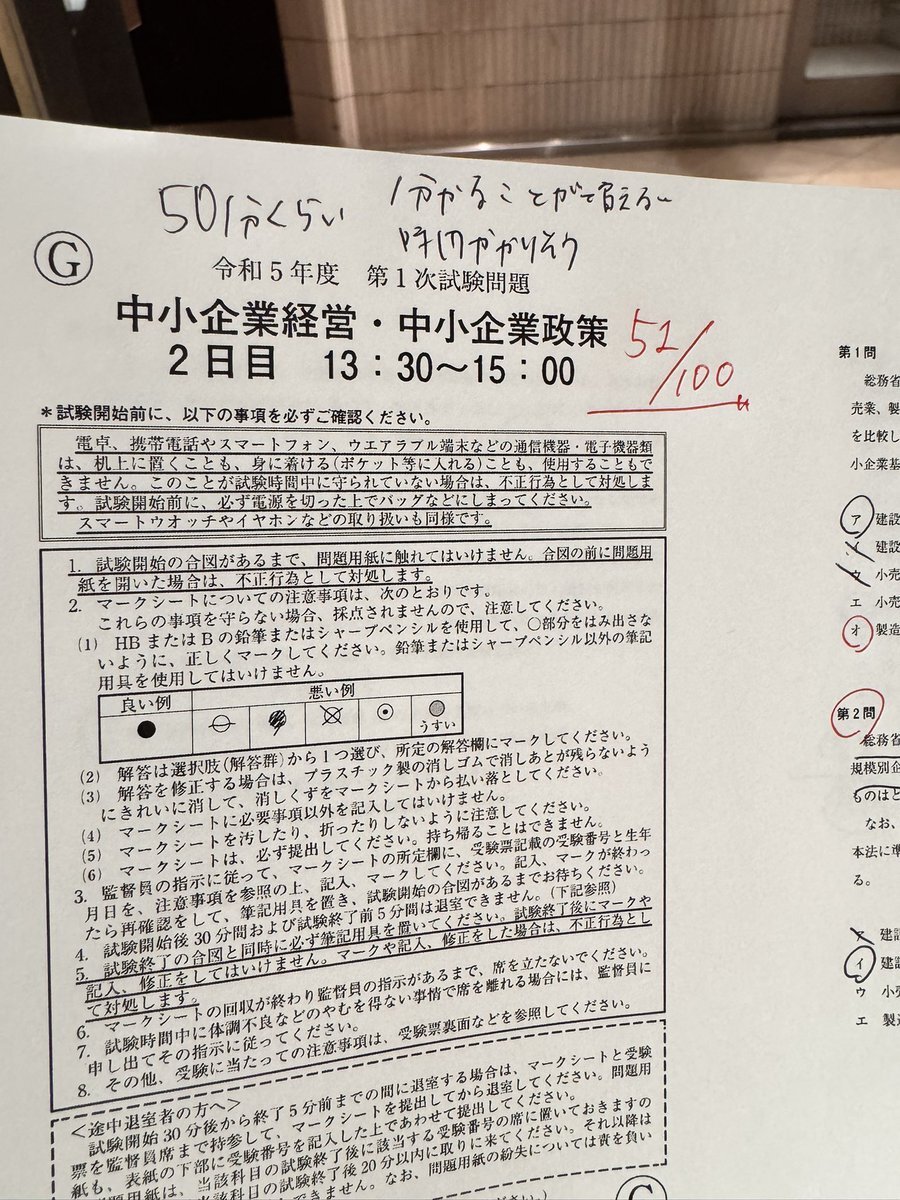 50分くらい
分かることが
時間かかりそう
G
令和5年度 第1次試験問題
中小企業経営・中小企業政策
2日目 13:30～15:00
51/100
*試験開始前に、以下の事項を必ずご確認ください。
電卓、携帯電話やスマートフォン、ウエアラブル端末などの通信機器・電子機器類
は、机上に置くことも、身に着ける(ポケット等に入れる)ことも、使用することもで
きません。このことが試験時間中に守られていない場合は、不正行為として対処しま
す。試験開始前に、必ず電源を切った上でバッグなどにしまってください。
スマートウオッチやイヤホンなどの取り扱いも同様です。
1. 試験開始の合図があるまで、問題用紙に触れてはいけません。合図の前に問題用
紙を開いた場合は、不正行為として対処します。
2. マークシートについての注意事項は、次のとおりです。
これらの事項を守らない場合、採点されませんので、注意してください。
(1) HBまたはBの鉛筆またはシャープペンシルを使用して、○部分をはみ出さな
いように、正しくマークしてください。鉛筆またはシャープペンシル以外の筆記
用具を使用してはいけません。
良い例 悪い例
うすい
(2) 解答は選択肢(解答群)から1つ選び、所定の解答欄にマークしてください。
(3) 解答を修正する場合は、プラスチック製の消しゴムで消しあとが残らないよう
にきれいに消して、消しくずをマークシートから払い落としてください。
(4) マークシートに必要事項以外を記入してはいけません。
(5) マークシートを汚したり、折ったりしないように注意してください。
(6) マークシートは、必ず提出してください。持ち帰ることはできません。
3. 監督員の指示に従って、マークシートの所定欄に、受験票記載の受験番号と生年
月日を、注意事項を参照の上、記入、マークしてください。記入、マークが終わっ
たら再確認をして、筆記用具を置き、試験開始の合図があるまでお待ちください。
4. 試験開始後30分間および試験終了前5分間は退室できません。(下記参照)
5. 試験終了の合図と同時に必ず筆記用具を置いてください。試験終了後にマークや
記入、修正をしてはいけません。マークや記入、修正をした場合は、不正行為とし
て対処します。
6. マークシートの回収が終わり監督員の指示があるまで、席を立たないでください。
7. 試験時間中に体調不良などのやむを得ない事情で席を離れる場合には、監督員に
申し出てその指示に従ってください。
8. その他、受験に当たっての注意事項は、受験票裏面などを参照してください。
<途中退室者の方へ>
試験開始30分後から終了5分前までの間に退室する場合は、マークシートと受験
票を監督員席まで持参して、マークシートを提出してから退室してください。問題用
紙も、表紙の下部に受験番号を記入した上であわせて提出してください。
題用紙は、当該科目の試験終了後に該当する受験番号の席に置いておきますの
当該科目の試験終了後20分以内に取りに来てください。それ以降は
できません。なお、問題用紙の紛失については責を負い
ください。)
G
第1問
総務省
売業、製
を比較し
小企業基
ア 建設
イ 建設
ウ 小売
エ 小売
オ 製造
第2問
総務省
規模別企
ものはど
なお、
本法に準
る。
ア 建設
イ 建設
ウ 小売
エ 製造